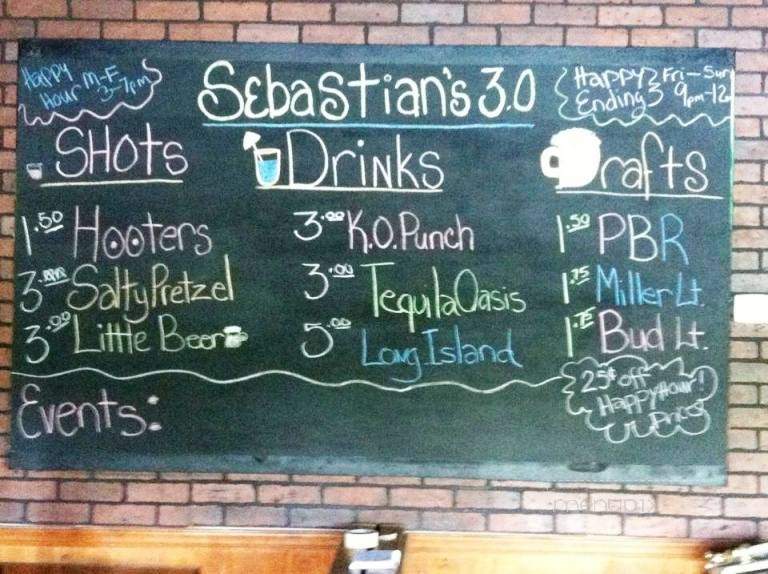 Happy
Hour M-F
3-7pm
Sebastian's 3.0
Happy
Ending
Fri-Sun
9pm-12
SHots
1.50 Hooters
3.00 Salty Pretzel
3.00 Little Beer
Drinks
3.00 K.O. Punch
3.00 Tequila Oasis
5.00 Long Island
Drafts
1.50 PBR
1.75 Miller Lt.
1.75 Bud Lt.
25¢ off
Happy Hour!
Prices
Events: